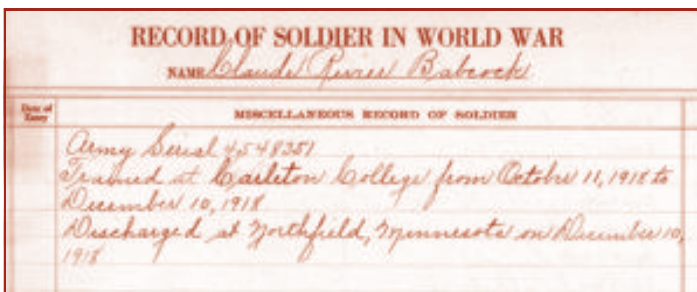 RECORD OF SOLDIER IN WORLD WAR
NAME Claude Babcock
Date of Entry
MISCELLANEOUS RECORD OF SOLDIER
Army Serial 4548251
Trained at Carleton College from October 11, 1918 to
December 10, 1918
Discharged at Northfield, Minnesota on December 10,
1918